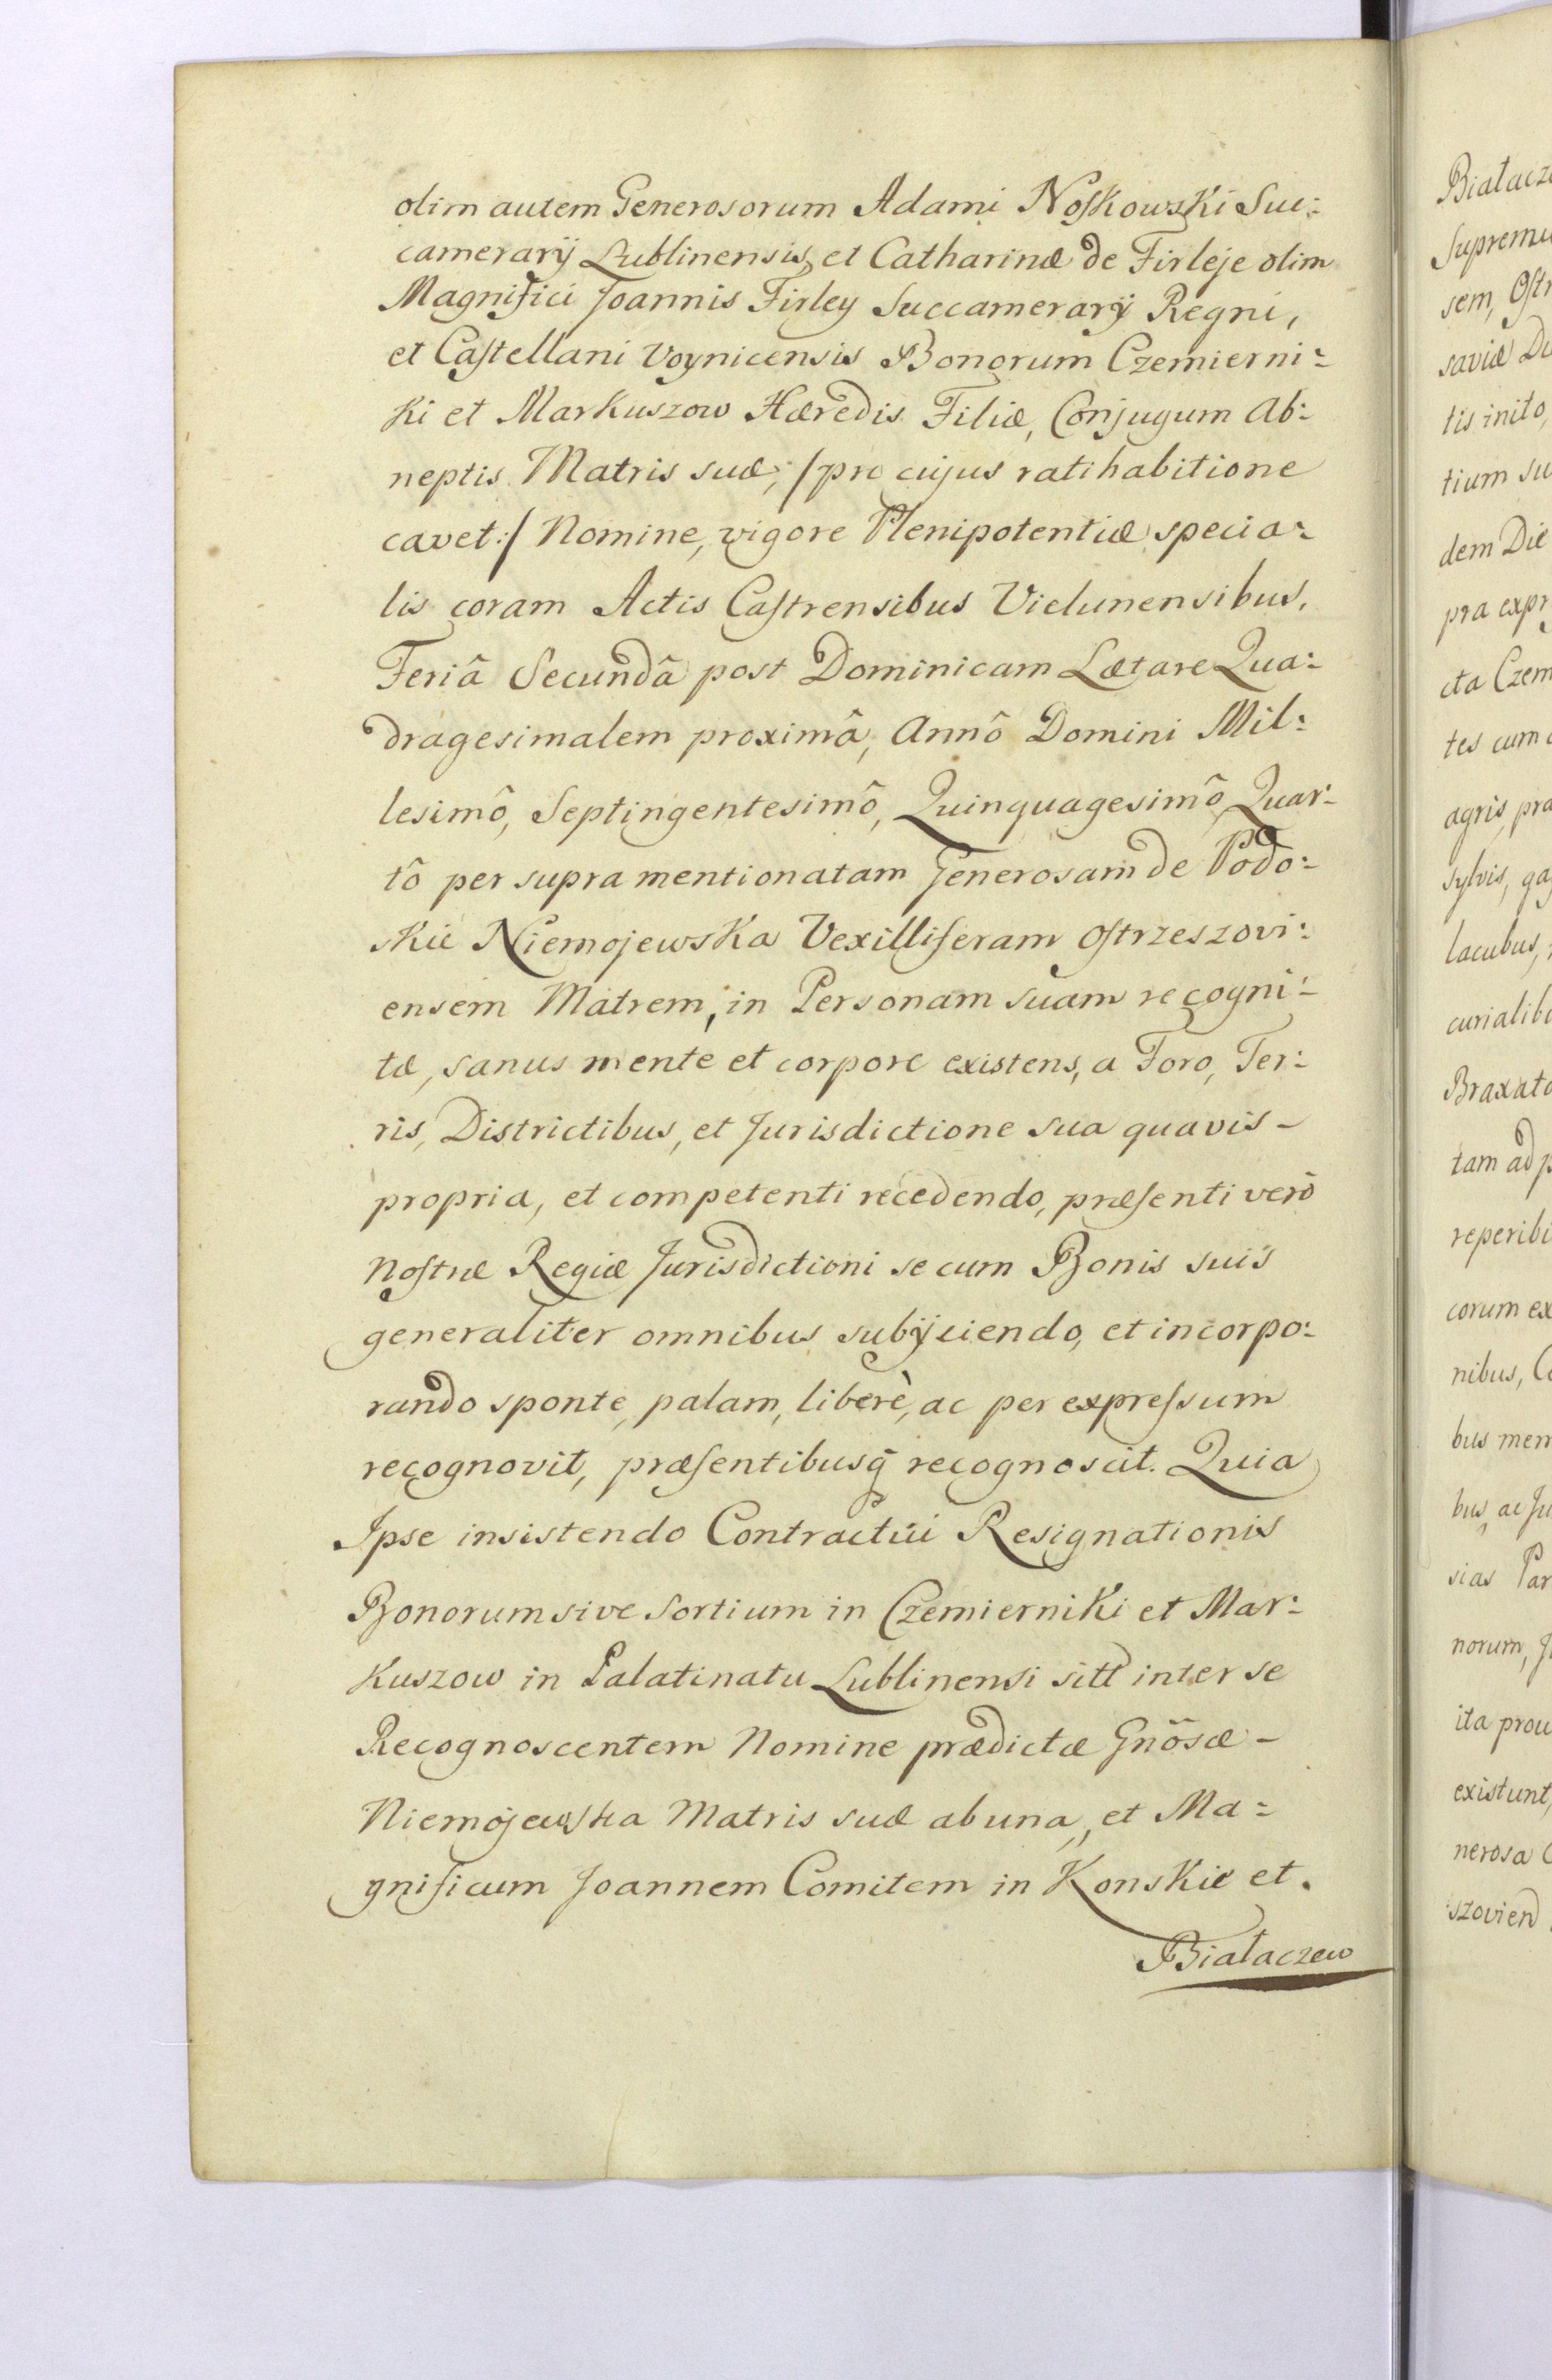 olim autem Generosorum Adami Noskowski Suc:
camerarij Lublinensis, et Catharinæ de Firleje olim
Magnifici Joannis Firley Succamerarij Regni,
et Castellani Voynicensis Bonorum Czemierni:
ki et Markuszow Hæredis Filiæ, Conjugum Ab:
neptis Matris suæ, /: pro cujus ratihabitione
cavet :/ Nomine, vigore Plenipotentiæ specia:
lis coram Actis Castrensibus Vielunensibus,
Feriâ Secundâ post Dominicam Lætare Qua:
dragesimalem proximâ, Annô Domini Mil:
lesimô, Septingentesimô, Quinquagesimô Quar:
tô per supra mentionatam Generosam de Podo:
skie Niemojewska Vexilliferam Ostrzeszovi:
ensem Matrem, in Personam suam recogni:
tæ, sanus mente et corpore existens, a Foro, Ter:
ris, Districtibus, et Jurisdictione sua quavis -
propria, et competenti recedendo, præsenti verò
Nostræ Regiæ Jurisdictioni se cum Bonis suis
generaliter omnibus subijciendo, et incorpo:
rando sponte, palam, liberè, ac per expressum
recognovit, præsentibusq̃ recognoscit. Quia
Ipse insistendo Contractui Resignationis
Bonorum sive Sortium in Czemierniki et Mar:
kuszow in Palatinatu Lublinensi sitt inter se
Recognoscentem Nomine prædictæ Gnõsæ -
Niemojewska Matris suæ ab una, et Ma:
gnificum Joannem Comitem in Konskie et.
Białaczew
Białacz
Supremu
sem, Ostr
saviæ Du
tis inito,
tium su
dem Die
pra expr
cta Czem
tes cum
agris, pra
sylvis, ga
lacubus,
curialib
Braxato
tam ad p
reperibi
corum ex
nibus, C
bus mem
bus, ac Ju
sias Par
norum,
ita prou
existunt,
nerosa
szovien